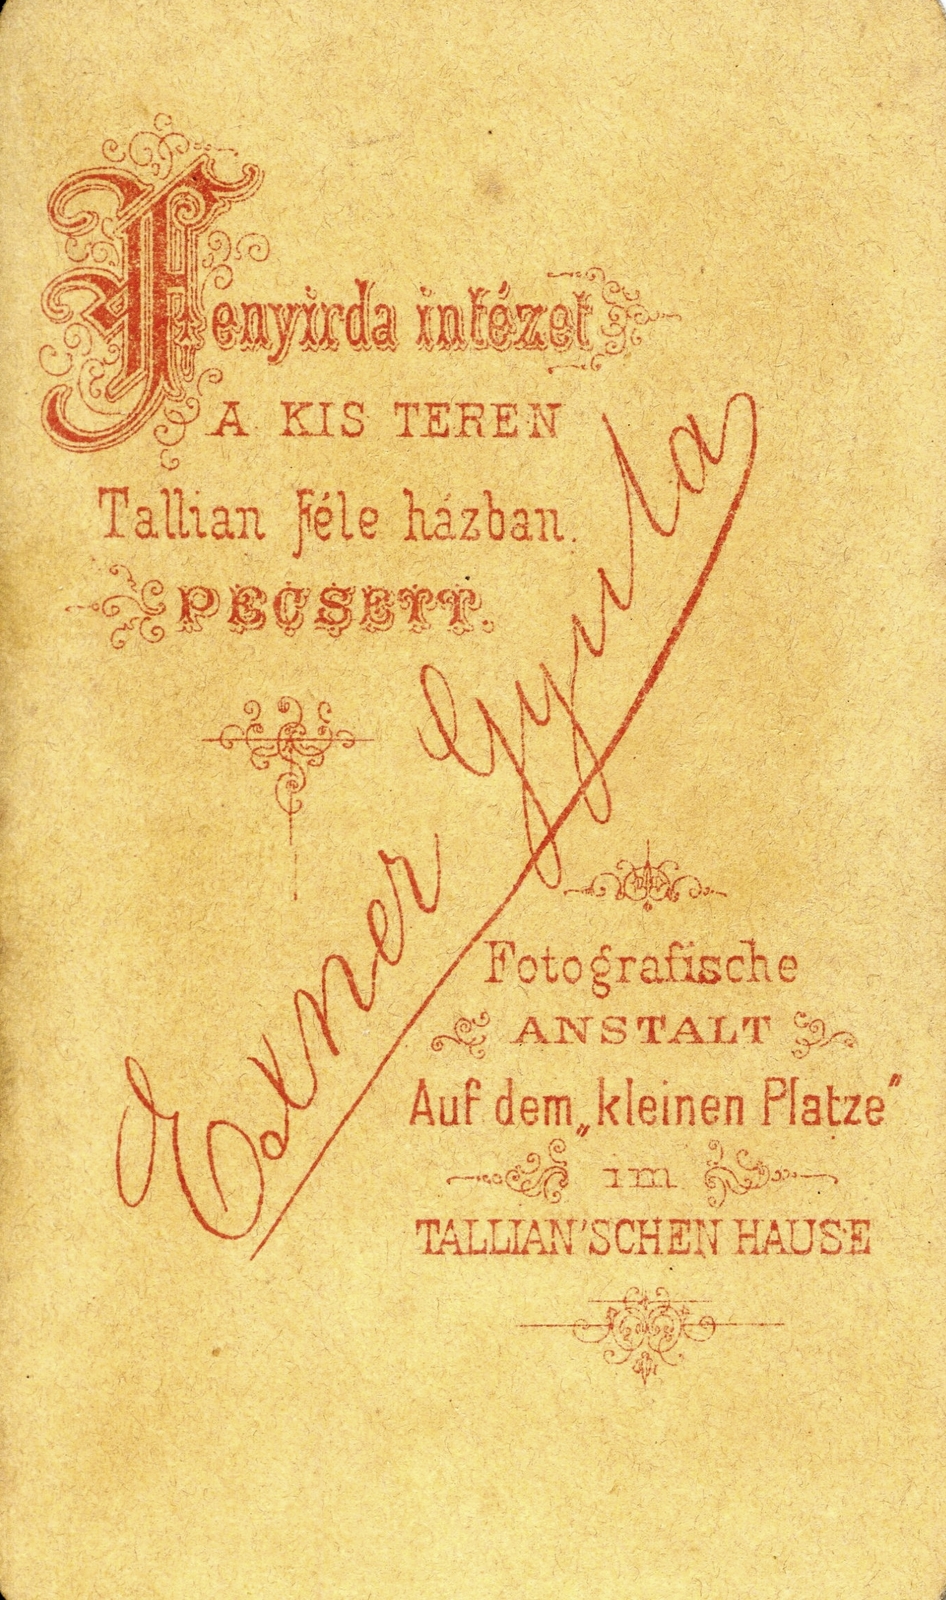 Fenyirda intézet
A KIS TEREN
Tallian féle házban.
PECSETT.
Exner Gyula
Fotografische
ANSTALT
Auf dem „kleinen Platze"
im
TALLIAN'SCHEN HAUSE